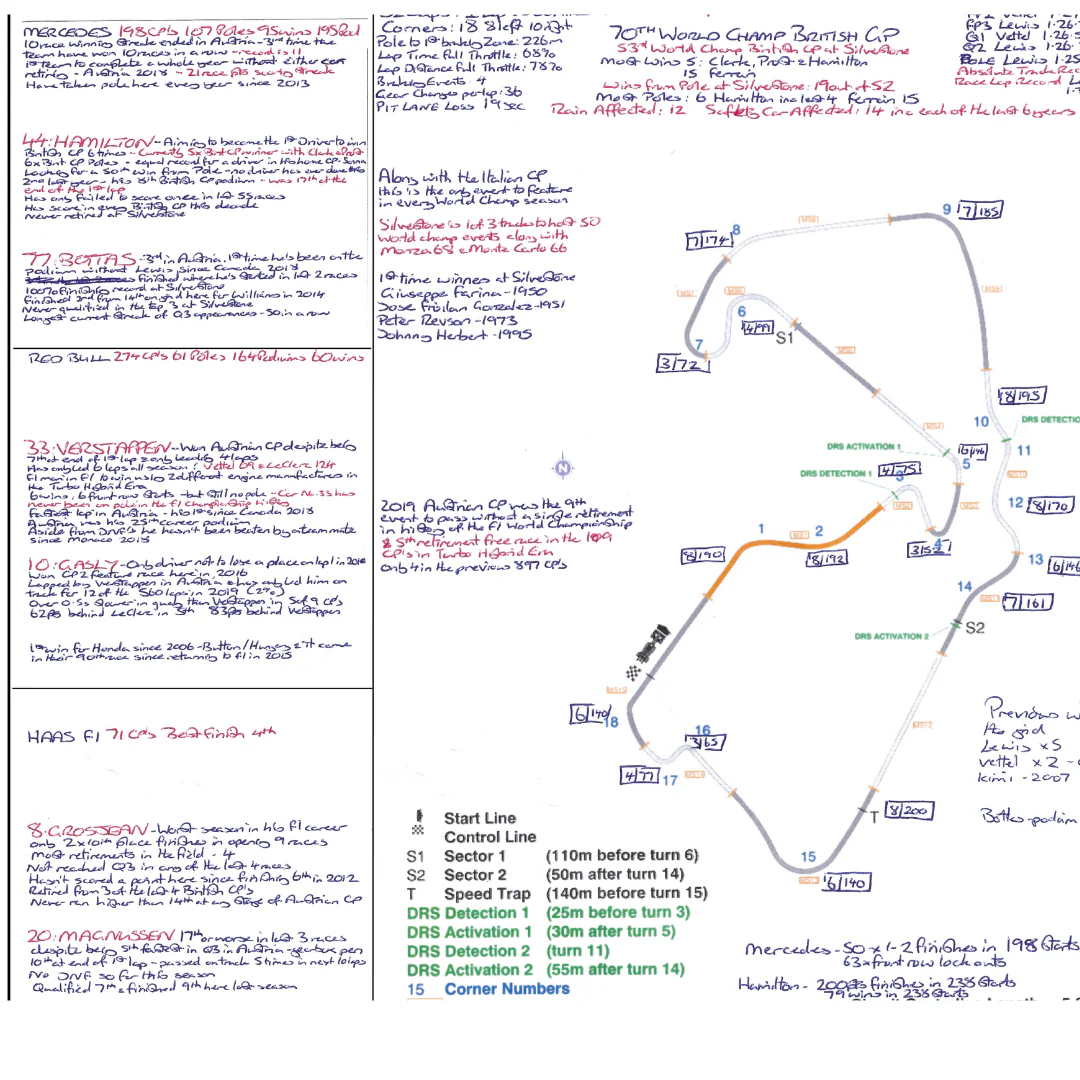 MERCEDES 198GPs 107 Poles 95wins 195Pod
10 race winning streak ended in Austria - 3rd time the
team have won 10 races in a row - record is 11
1st team to complete a whole year without either car
retiring - Austria 2018 - 21 race pts scoring streak
Have taken pole here every year since 2013
44: HAMILTON - Aiming to become the 1st Driver to win
British GP 6 times - Currently 5x Brit GP winner with Clark & Prost
6x Brit GP Poles - equal record for a driver in his home GP - Senna
Looking for a 50th win from Pole - no driver has ever done this
2nd last year - his 8th British GP podium - was 17th at the
end of the 1st lap
Has only failed to score once in last 55 races
Has score in every British GP this decade
Never retired at Silverstone
77: BOTTAS - 3rd in Austria, 1st time he's been on the
podium without Lewis since Canada 2018
finished where he's started in last 2 races
100% finishing record at Silverstone
Finished 2nd from 14th on grid here for Williams in 2014
Never qualified in the top 3 at Silverstone
Longest current streak of Q3 appearances - 50 in a row
RED BULL 274GPs 61 Poles 164 Podiums 60 wins
33: VERSTAPPEN - Won Austrian GP despite being
7th at end of 1st lap & only leading 4 laps
Has only led 6 laps all season: Vettel 69 & LeClerc 124
F1 man in F1 to win using 2 different engine manufacturers in
the Turbo Hybrid Era
6 wins, 6 front row starts - but still no pole - Car No.33 has
never been on pole in the F1 Championship history
Fastest lap in Austria - his 1st since Canada 2018
Austria was his 25th career podium
Aside from DNFs he hasn't been beaten by a team mate
since Monaco 2018
10: GASLY - Only driver not to lose a place on lap 1 in 2018
won GP2 Feature race here in 2016
Lapped by Verstappen in Austria & has only led him on
track for 12 of the 560 laps in 2019 (2%)
Over 0.5s slower in qualy than Verstappen in 5 of 9 GPs
62pts behind LeClerc in 5th 83pts behind Verstappen
1st win for Honda since 2006 - Button/Hungary & it came
in their 90th race since returning to F1 in 2015
HAAS F1 71 GPs Best Finish 4th
8: GROSJEAN - Worst season in his F1 career
only 2x 10th place finishes in opening 9 races
Most retirements in the field - 4
Not reached Q3 in any of the last 4 races
Hasn't scored a point here since finishing 6th in 2012
Retired from 3 of the last 4 British GPs
Never ran higher than 14th at any stage of Austrian GP
20: MAGNUSSEN 17th or worse in last 3 races
despite being 5th fastest in Q3 in Austria - gearbox pen
10th at end of 1st lap - passed on track 5 times in next 10 laps
No DNF so far this season
Qualified 7th & finished 9th here last season
Corners: 18 8 left 10 right
Pole to 1st braking Zone: 226m
Lap Time Full Throttle: 68%
Lap Distance Full Throttle: 78%
Braking Events: 4
Gear Changes per lap: 36
PIT LANE Loss 19 sec
70TH WORLD CHAMP BRITISH GP
53rd World Champ British GP at Silverstone
Most Wins 5: Clark, Prost & Hamilton
15 Ferrari
Wins from Pole at Silverstone: 19 out of 52
Most Poles: 6 Hamilton inc last 4 Ferrari 15
Rain Affected: 12 Safety Car Affected: 14 inc each of the last 6 years
FP3 Lewis 1.26.
Q1 Vettel 1.26.
Q2 Lewis 1.26.
POLE Lewis 1.25
Absolute Track Rec
Race Lap Record
Along with the Italian GP
this is the only event to feature
in every World Champ season
Silverstone is 1 of 3 tracks to host 50
world champ events along with
Monza 68 & Monte Carlo 66
1st time winners at Silverstone
Giuseppe Farina - 1950
Jose Froilan Gonzalez - 1951
Peter Revson - 1973
Johnny Herbert - 1995
2019 Austrian GP was the 9th
event to pass without a single retirement
in history of the F1 World Championship
& 5th retirement free race in the 109
GPs in Turbo Hybrid Era
only 4 in the previous 897 GPs
9 7/185
7/174 8
6
4/99
S1
7
3/72
8/195
10
DRS DETECTIO
11
DRS ACTIVATION 1
5
DRS DETECTION 1
4/75
3
12 8/170
N
1 2
8/190
8/192
4
13
14
7/161
S2
DRS ACTIVATION 2
6/140
18
16
3/65
4/77 17
T 8/200
15
6/140
Previous wi
Lewis x5
Vettel x2
Kimi - 2007
Bottas - podium
Start Line
Control Line
S1 Sector 1 (110m before turn 6)
S2 Sector 2 (50m after turn 14)
T Speed Trap (140m before turn 15)
DRS Detection 1 (25m before turn 3)
DRS Activation 1 (30m after turn 5)
DRS Detection 2 (turn 11)
DRS Activation 2 (55m after turn 14)
15 Corner Numbers
Mercedes - 50 x 1-2 finishes in 198 Starts
63 x front row lock outs
Hamilton - 200pts finishes in 238 Starts
79 wins in 238 Starts